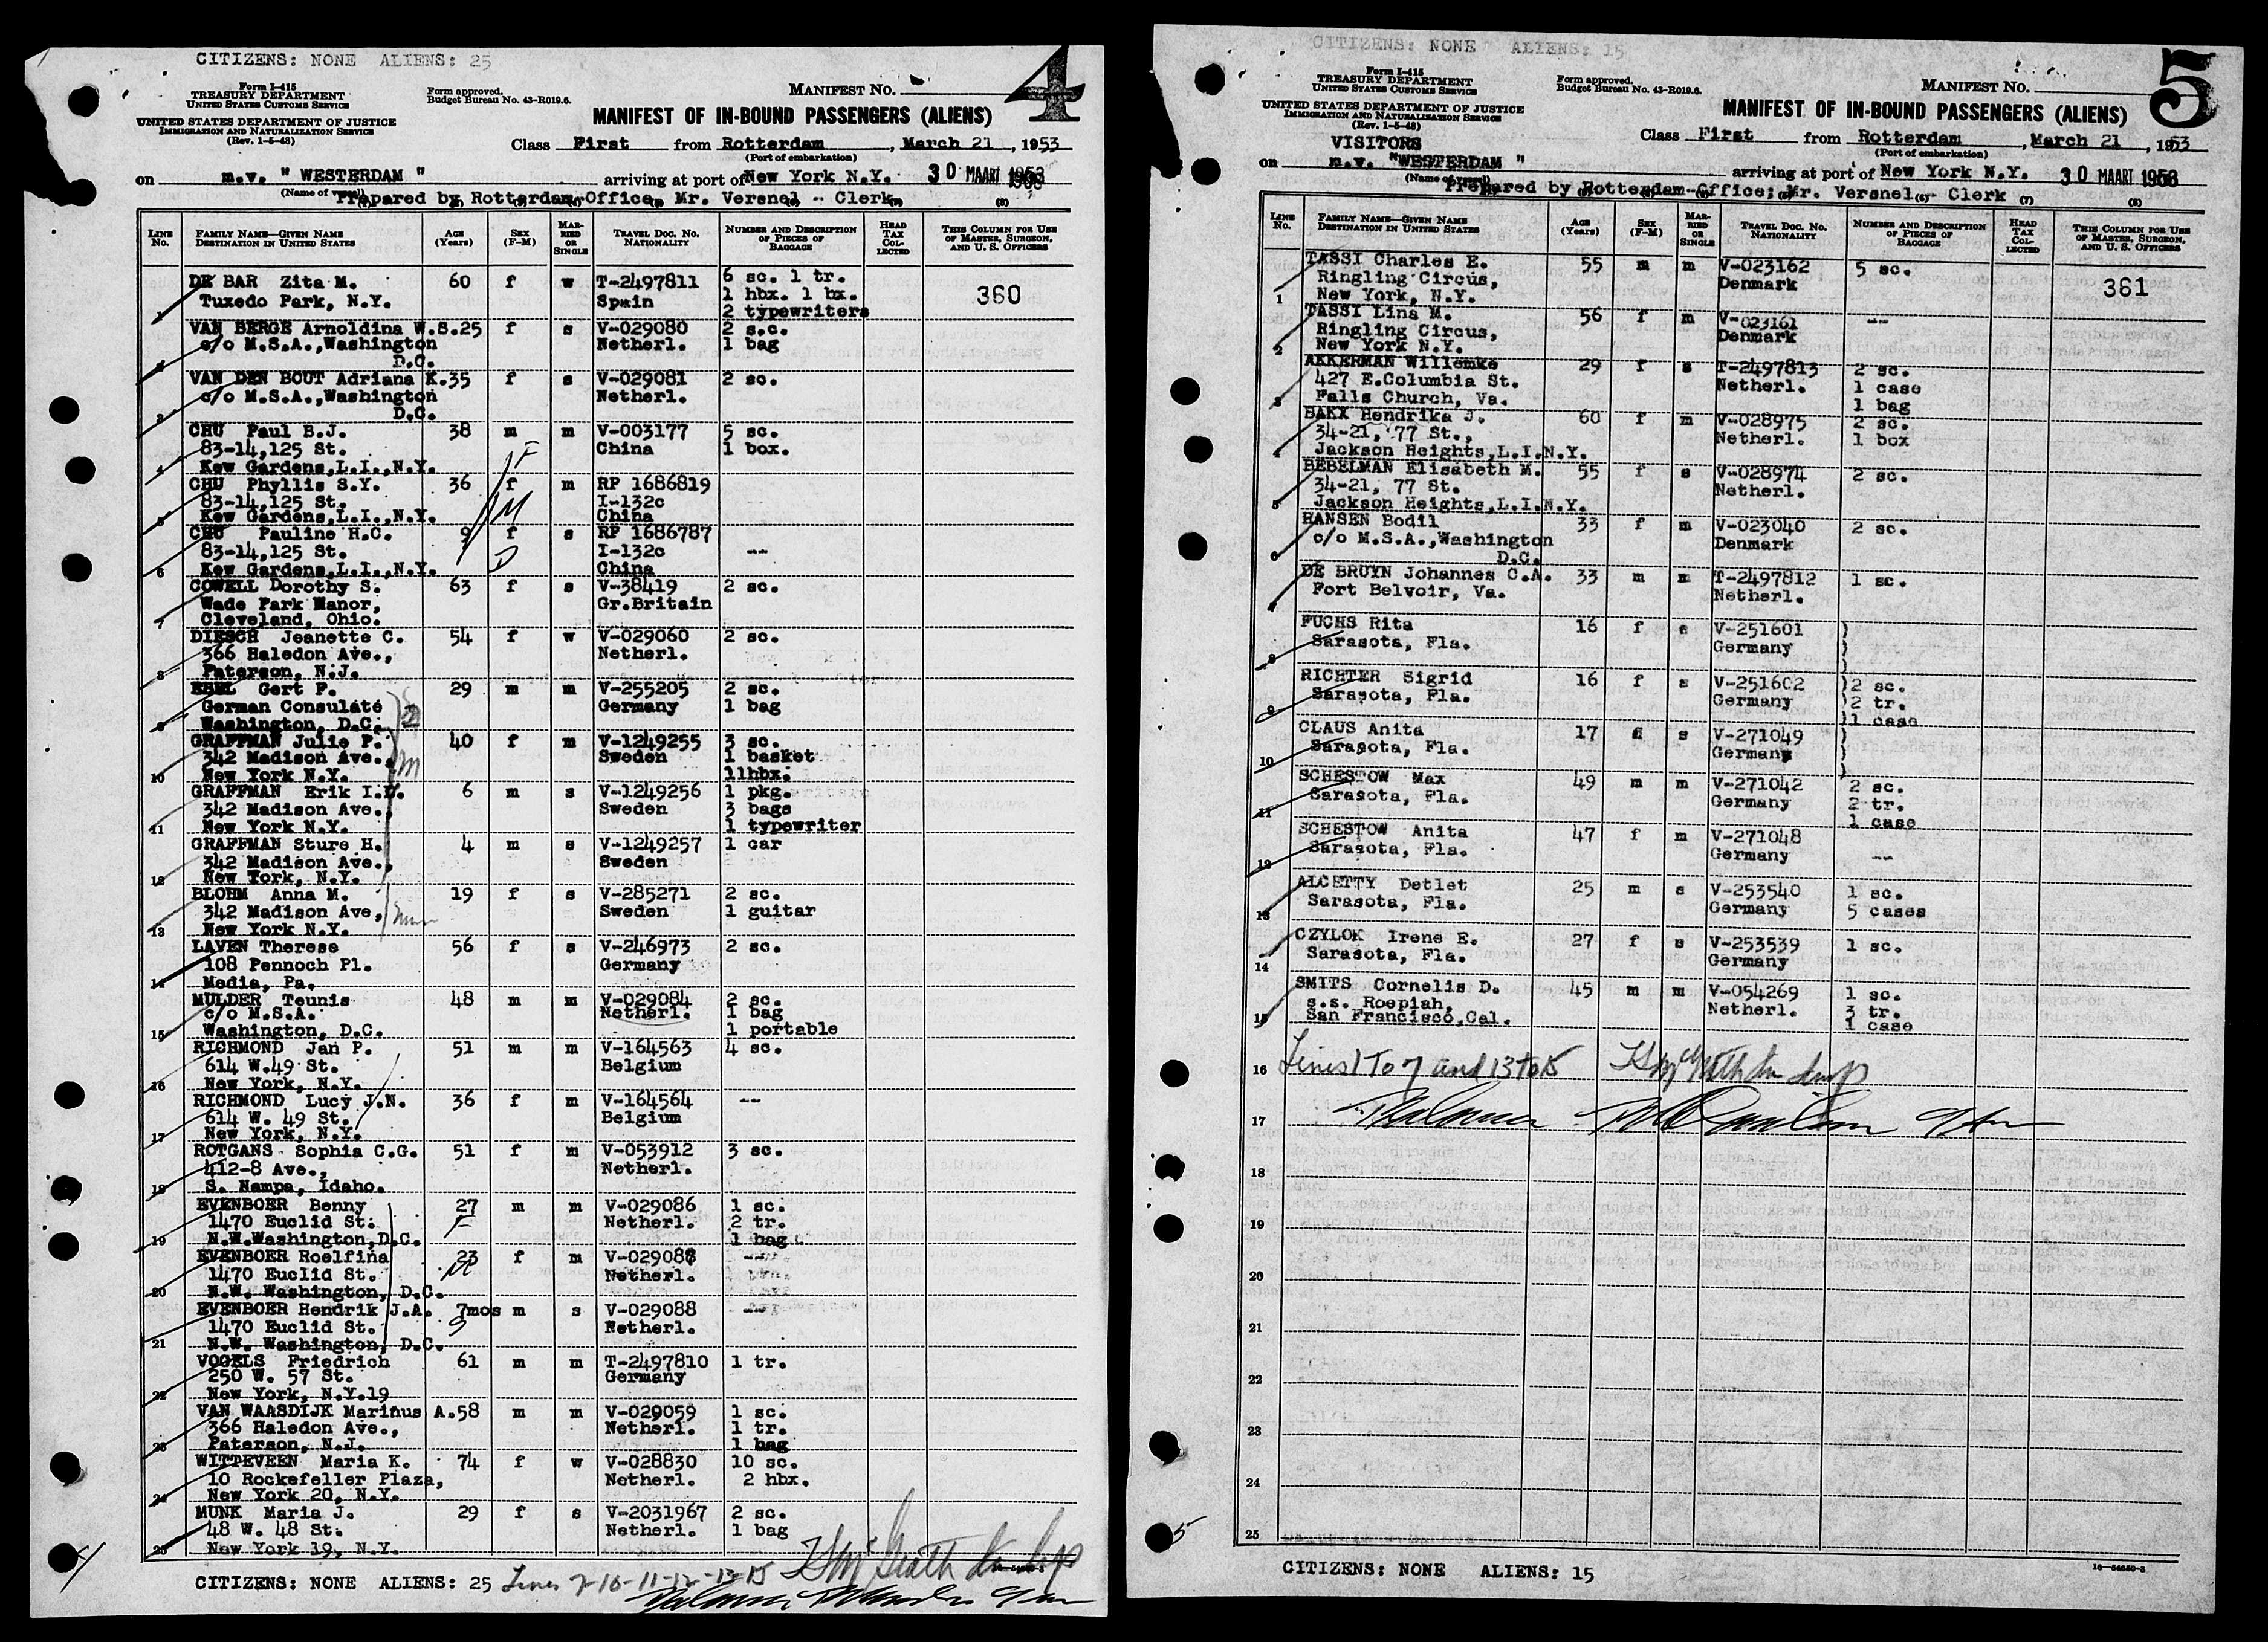 CITIZENS: NONE ALIENS: 25
4
Form I-415
TREASURY DEPARTMENT
UNITED STATES CUSTOMS SERVICE
UNITED STATES DEPARTMENT OF JUSTICE
IMMIGRATION AND NATURALIZATION SERVICE
(Rev. 1-5-48)
Form approved.
Budget Bureau No. 43-R019.6.
MANIFEST NO.
MANIFEST OF IN-BOUND PASSENGERS (ALIENS)
Class First from Rotterdam, March 21, 1953
(Port of embarkation)
on m.v. " WESTERDAM " arriving at port of New York N.Y. 30 MAART 1953
(Name of vessel)
Prepared by Rotterdam-Office, Mr. Versnel - Clerk
LINE No. FAMILY NAME—GIVEN NAME DESTINATION IN UNITED STATES AGE (Years) SEX (F-M) MARRIED OR SINGLE TRAVEL DOC. NO. NATIONALITY NUMBER AND DESCRIPTION OF PIECES OF BAGGAGE HEAD TAX COLLECTED THIS COLUMN FOR USE OF MASTER, SURGEON, AND U. S. OFFICERS
DE BAR Zita M. 60 f w T-2497811 6 sc. 1 tr.
Tuxedo Park, N.Y. Spain 1 hbx. 1 bx. 360
1 2 typewriters
VAN BERGE Arnoldina W.S. 25 f s V-029080 2 s.c.
c/o M.S.A.,Washington Netherl. 1 bag
2 D.C.
VAN DEN BOUT Adriana K. 35 f s V-029081 2 sc.
c/o M.S.A.,Washington Netherl.
3 D.C.
CHU Paul B.J. 38 m m V-003177 5 sc.
83-14,125 St. China 1 box.
4 Kew Gardens,L.I.,N.Y. F
CHU Phyllis S.Y. 36 f m RP 1686819
83-14,125 St. M I-132c
5 Kew Gardens,L.I.,N.Y. China
CHU Pauline H.C. 9 f s RP 1686787
83-14,125 St. D I-132c --
6 Kew Gardens,L.I.,N.Y. China
COWELL Dorothy S. 63 f s V-38419 2 sc.
Wade Park Manor, Gr.Britain
7 Cleveland, Ohio.
DIESCH Jeanette C. 54 f w V-029060 2 sc.
366 Haledon Ave., Netherl.
8 Paterson, N.J.
EBEL Gert P. 29 m m V-255205 2 sc.
German Consulate Germany 1 bag
9 Washington, D.C.
GRAFFMAN Julie P. 40 f m V-1249255 3 sc.
342 Madison Ave., Sweden 1 basket
10 New York N.Y. 11hbx.
GRAFFMAN Erik I.D. 6 m s V-1249256 1 pkg.
342 Madison Ave., Sweden 3 bags
11 New York N.Y. 1 typewriter
GRAFFMAN Sture H. 4 m s V-1249257 1 car
342 Madison Ave., Sweden
12 New York, N.Y.
BLOHM Anna M. 19 f s V-285271 2 sc.
342 Madison Ave, Sweden 1 guitar
13 New York N.Y.
LAVEN Therese 56 f s V-246973 2 sc.
108 Pennoch Pl. Germany
14 Media, Pa.
MULDER Teunis 48 m m V-029084 2 sc.
c/o M.S.A. Netherl. 1 bag
15 Washington, D.C. 1 portable
RICHMOND Jan P. 51 m m V-164563 4 sc.
614 W.49 St. Belgium
16 New York, N.Y.
RICHMOND Lucy J.N. 36 f m V-164564 --
614 W. 49 St. Belgium
17 New York, N.Y.
ROTGANS Sophia C.G. 51 f m V-053912 3 sc.
412-8 Ave., Netherl.
18 S. Nampa, Idaho.
EVENBOER Benny 27 m m V-029086 1 sc.
1470 Euclid St. F Netherl. 2 tr.
19 N.W.Washington,D.C. 1 bag
EVENBOER Roelfina 23 f m V-029088 --
1470 Euclid St. M Netherl.
20 N.W. Washington, D.C.
EVENBOER Hendrik J.A. 7mos m s V-029088 --
1470 Euclid St. Netherl.
21 N.W. Washington, D.C.
VOGELS Friedrich 61 m m T-2497810 1 tr.
250 W. 57 St. Germany
22 New York, N.Y.19
VAN WAASDIJK Marinus A. 58 m m V-029059 1 sc.
366 Haledon Ave., Netherl. 1 tr.
23 Paterson, N.J. 1 bag
WITTEVEEN Maria K. 74 f w V-028830 10 sc.
10 Rockefeller Plaza, Netherl. 2 hbx.
24 New York 20, N.Y.
MUNK Maria J. 29 f s V-2031967 2 sc.
48 W. 48 St. Netherl. 1 bag
25 New York 19, N.Y.
CITIZENS: NONE ALIENS: 25
CITIZENS: NONE ALIENS: 15
5
Form I-415
TREASURY DEPARTMENT
UNITED STATES CUSTOMS SERVICE
UNITED STATES DEPARTMENT OF JUSTICE
IMMIGRATION AND NATURALIZATION SERVICE
(Rev. 1-5-48)
Form approved.
Budget Bureau No. 43-R019.6.
MANIFEST NO.
MANIFEST OF IN-BOUND PASSENGERS (ALIENS)
Class First from Rotterdam, March 21, 1953
(Port of embarkation)
VISITORS
on m.v. "WESTERDAM " arriving at port of New York N.Y. 30 MAART 1953
(Name of vessel)
Prepared by Rotterdam-Office; Mr. Versnel - Clerk
LINE No. FAMILY NAME—GIVEN NAME DESTINATION IN UNITED STATES AGE (Years) SEX (F-M) MARRIED OR SINGLE TRAVEL DOC. NO. NATIONALITY NUMBER AND DESCRIPTION OF PIECES OF BAGGAGE HEAD TAX COLLECTED THIS COLUMN FOR USE OF MASTER, SURGEON, AND U. S. OFFICERS
TASSI Charles E. 55 m m V-023162 5 sc.
Ringling Circus, Denmark 361
1 New York, N.Y.
TASSI Lina M. 56 f m V-023161 --
Ringling Circus, Denmark
2 New York N.Y.
AKKERMAN Willemke 29 f s T-2497813 2 sc.
427 E.Columbia St. Netherl. 1 case
3 Falls Church, Va. 1 bag
BAKX Hendrika J. 60 f m V-028975 2 sc.
34-21, 77 St., Netherl. 1 box
4 Jackson Heights,L.I.N.Y.
BEBELMAN Elisabeth M. 55 f s V-028974 2 sc.
34-21, 77 St. Netherl.
5 Jackson Heights,L.I.N.Y.
HANSEN Bodil 33 f m V-023040 2 sc.
c/o M.S.A.,Washington Denmark
6 D.C.
DE BRUYN Johannes C.A. 33 m m T-2497812 1 sc.
Fort Belvoir, Va. Netherl.
7
FUCHS Rita 16 f s V-251601 )
Sarasota, Fla. Germany )
8 )
RICHTER Sigrid 16 f s V-251602 )2 sc.
Sarasota, Fla. Germany )2 tr.
9 )1 case
CLAUS Anita 17 f s V-271049 )
Sarasota, Fla. Germany )
10 )
SCHESTOW Max 49 m m V-271042 2 sc.
Sarasota, Fla. Germany 2 tr.
11 1 case
SCHESTOW Anita 47 f m V-271048
Sarasota, Fla. Germany --
12
ALCETTY Detlet 25 m s V-253540 1 sc.
Sarasota, Fla. Germany 5 cases
13
CZYLOK Irene E. 27 f s V-253539 1 sc.
Sarasota, Fla. Germany
14
SMITS Cornelis D. 45 m m V-054269 1 sc.
s.s. Roepiah, Netherl. 3 tr.
15 San Francisco,Cal. 1 case
16 Lines 1 to 7 and 13 to 15
17
18
19
20
21
22
23
24
25
5
CITIZENS: NONE ALIENS: 15